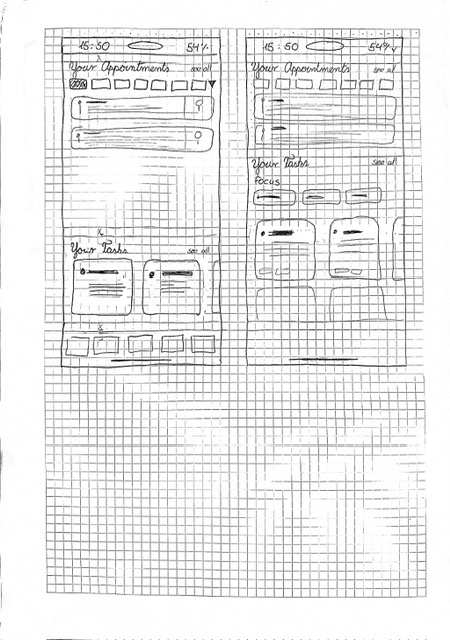 15:50 54%
Your Appointments see all
Your Tasks see all
15:50 54%
Your Appointments see all
Your Tasks see all
Focus